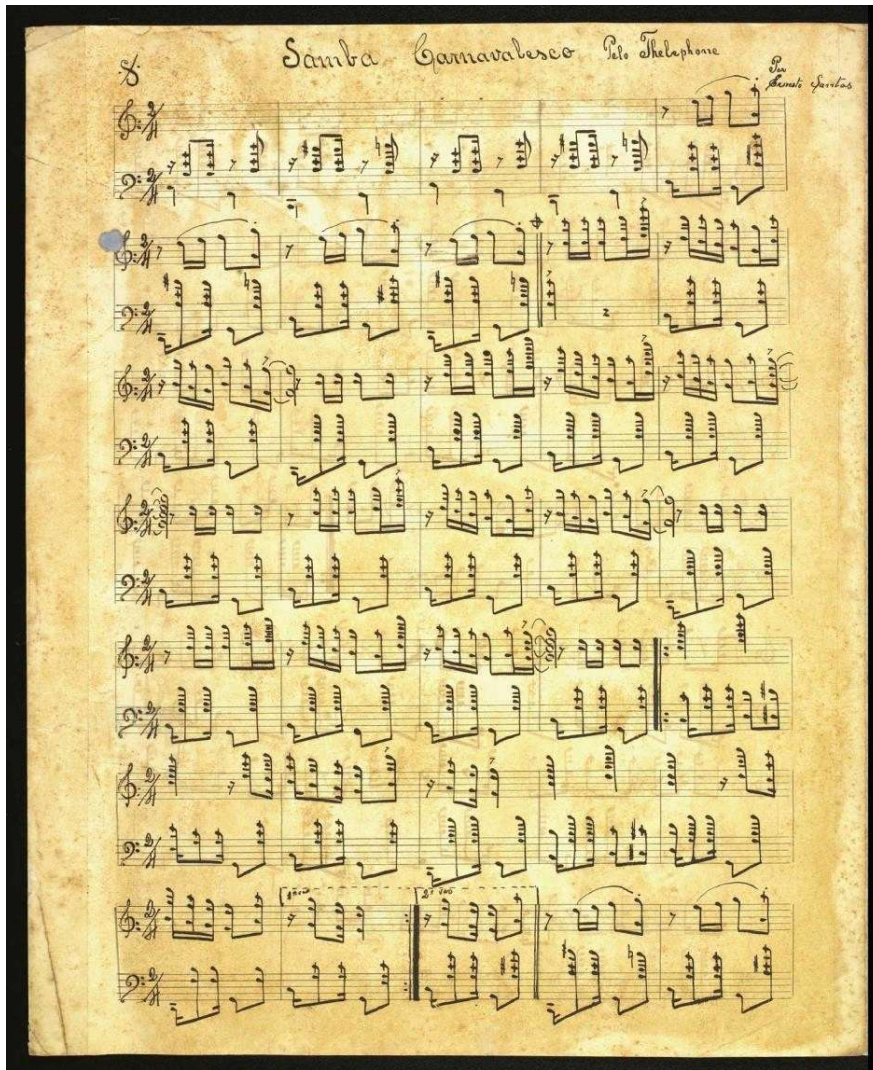 Samba Carnavalesco Pelo Thelephone
Por
Ernesto Santos
2ª vez